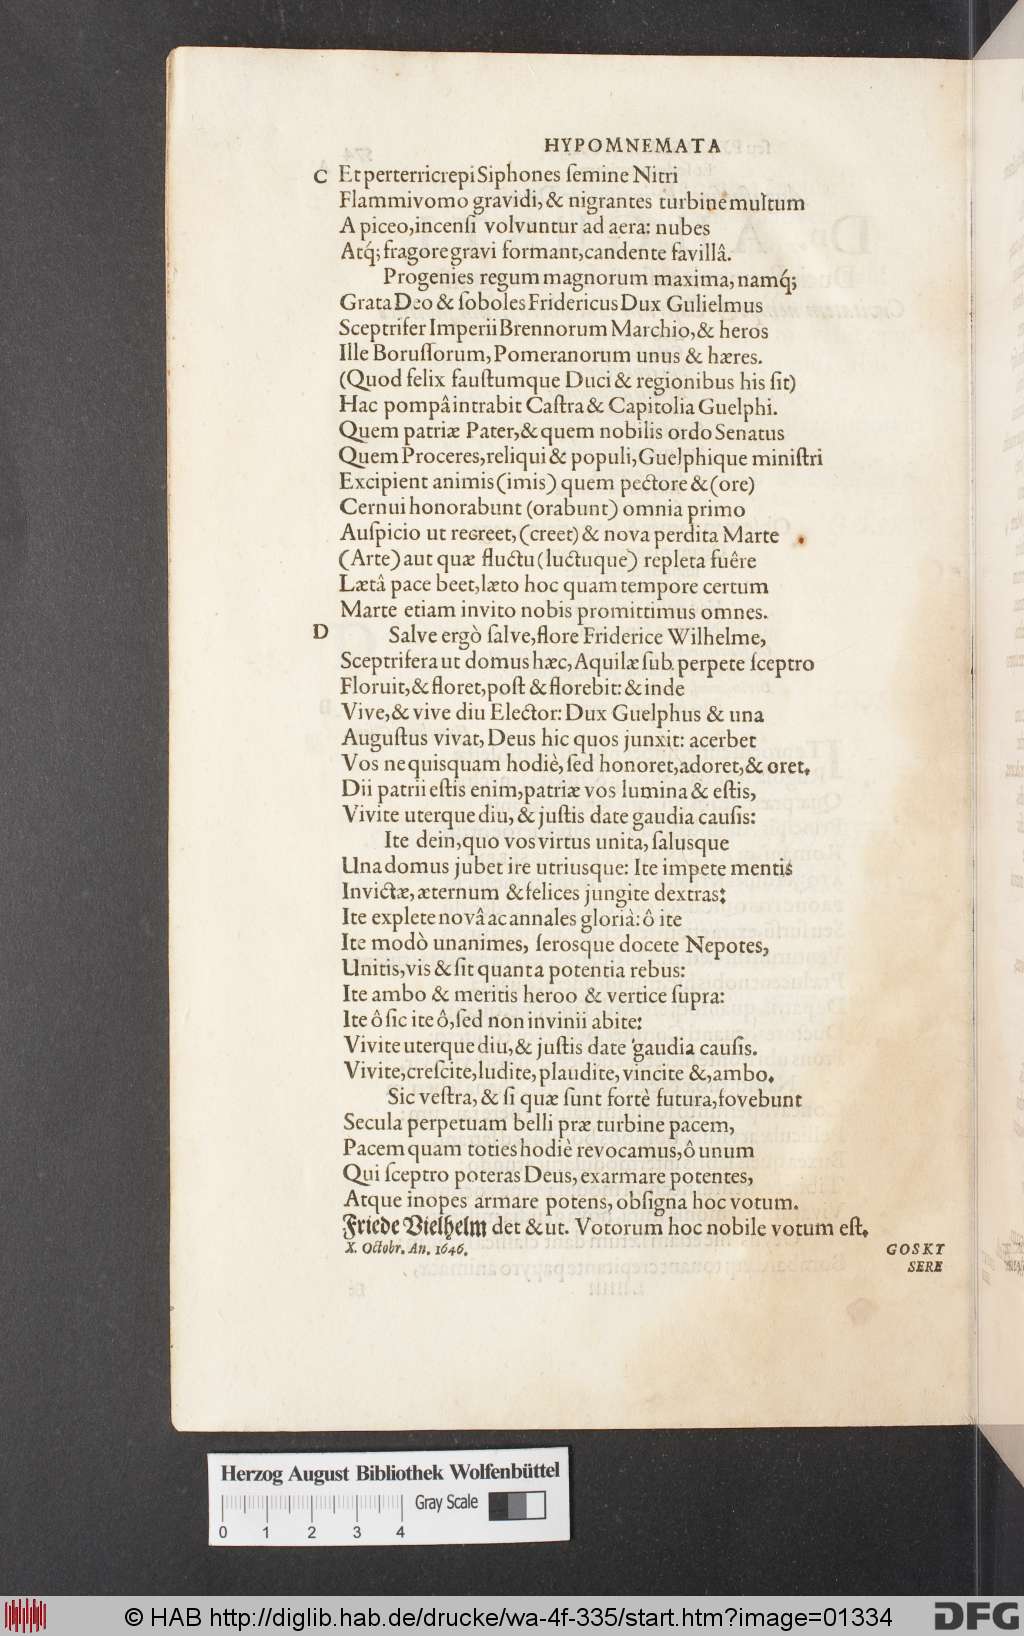 HYPOMNEMATA
C Et perterricrepi Siphones ſemine Nitri
Flammivomo gravidi, & nigrantes turbine multum
A piceo, incenſi volvuntur ad aera: nubes
Atq́; fragore gravi formant, candente favillâ.
Progenies regum magnorum maxima, namq́;
Grata Deo & ſoboles Fridericus Dux Gulielmus
Sceptrifer Imperii Brennorum Marchio, & heros
Ille Boruſſorum, Pomeranorum unus & hæres.
(Quod felix fauſtumque Duci & regionibus his ſit)
Hac pompâ intrabit Caſtra & Capitolia Guelphi.
Quem patriæ Pater, & quem nobilis ordo Senatus
Quem Proceres, reliqui & populi, Guelphique miniſtri
Excipient animis (imis) quem pectore & (ore)
Cernui honorabunt (orabunt) omnia primo
Auſpicio ut recreet, (creet) & nova perdita Marte
(Arte) aut quæ fluctu (luctuque) repleta fuêre
Lætâ pace beet, læto hoc quam tempore certum
Marte etiam invito nobis promittimus omnes.
D Salve ergò ſalve, flore Friderice Wilhelme,
Sceptrifera ut domus hæc, Aquilæ ſub perpete ſceptro
Floruit, & floret, poſt & florebit: & inde
Vive, & vive diu Elector: Dux Guelphus & una
Auguſtus vivat, Deus hic quos junxit: acerbet
Vos ne quisquam hodiè, ſed honoret, adoret, & oret.
Dii patrii eſtis enim, patriæ vos lumina & eſtis,
Vivite uterque diu, & juſtis date gaudia cauſis:
Ite dein, quo vos virtus unita, ſalusque
Una domus jubet ire utriusque: Ite impete mentis
Invictæ, æternum & felices jungite dextras:
Ite explete novâ ac annales glorià: ô ite
Ite modò unanimes, ſerosque docete Nepotes,
Unitis, vis & ſit quanta potentia rebus:
Ite ambo & meritis heroo & vertice ſupra:
Ite ô ſic ite ô, ſed non invinii abite:
Vivite uterque diu, & juſtis date gaudia cauſis.
Vivite, creſcite, ludite, plaudite, vincite &, ambo.
Sic veſtra, & ſi quæ ſunt fortè futura, fovebunt
Secula perpetuam belli præ turbine pacem,
Pacem quam toties hodiè revocamus, ô unum
Qui ſceptro poteras Deus, exarmare potentes,
Atque inopes armare potens, obſigna hoc votum.
Friede Vielhelm det & ut. Votorum hoc nobile votum eſt.
X. Octobr. An. 1646.
GOSKY
SERE
Herzog August Bibliothek Wolfenbüttel
Gray Scale
0 1 2 3 4
© HAB http://diglib.hab.de/drucke/wa-4f-335/start.htm?image=01334
DFG